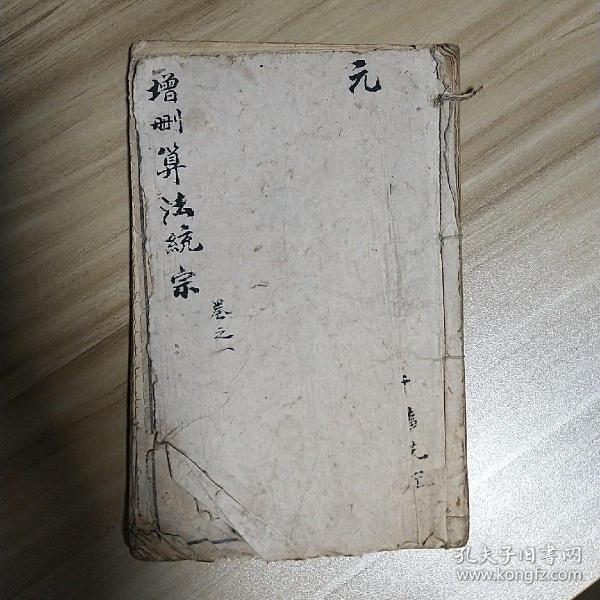 元
增删算法統宗
卷之一
孔夫子旧书网
www.kongfz.com